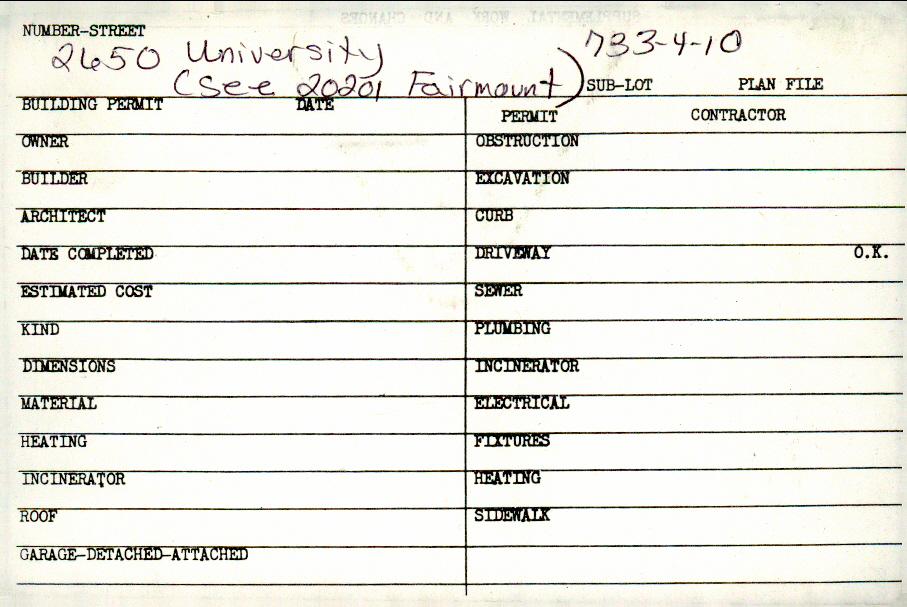 SUPPLEMENTAL WORK AND CHANGES
NUMBER-STREET
2650 University 733-4-10
(See 20201 Fairmount) SUB-LOT PLAN FILE
BUILDING PERMIT DATE
PERMIT CONTRACTOR
OWNER OBSTRUCTION
BUILDER EXCAVATION
ARCHITECT CURB
DATE COMPLETED DRIVEWAY O.K.
ESTIMATED COST SEWER
KIND PLUMBING
DIMENSIONS INCINERATOR
MATERIAL ELECTRICAL
HEATING FIXTURES
INCINERATOR HEATING
ROOF SIDEWALK
GARAGE-DETACHED-ATTACHED